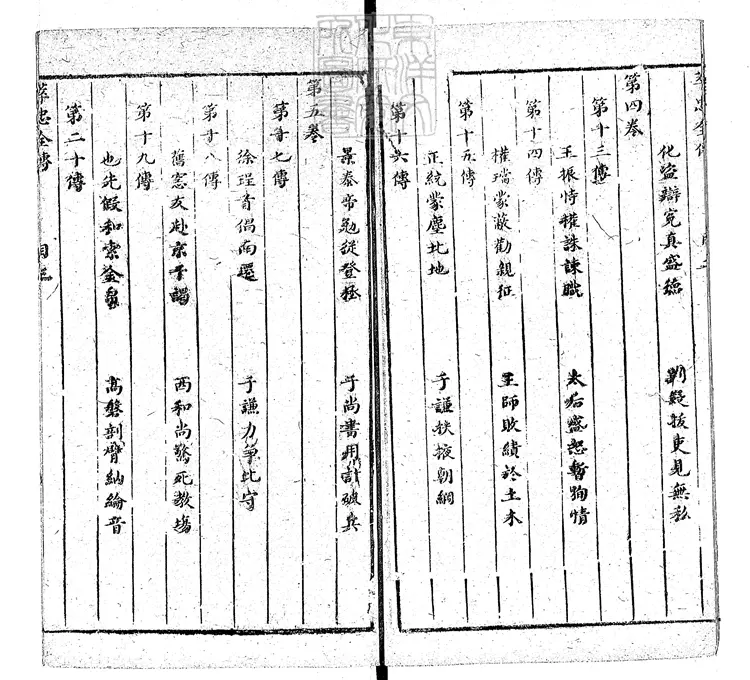 萃忠全傳
化盜辯冤真盛德 勘疑拔吏見無私
第四卷
第十三傳
王振恃權誅諫職 太后盛怒暫狥情
第十四傳
權璫蒙蔽勸親征 王師敗績於土木
第十五傳
正統蒙塵北地 于謙扶掖朝綱
第十六傳
景泰帝勉從登極 于尚書用計破兵
第五卷
第十七傳
徐珵首倡南遷 于謙力爭北守
第十八傳
舊窓友赴京干謁 西和尚驚死教場
第十九傳
也先假和索金帛 高磐剖臂納綸音
第二十傳
萃忠全傳 目